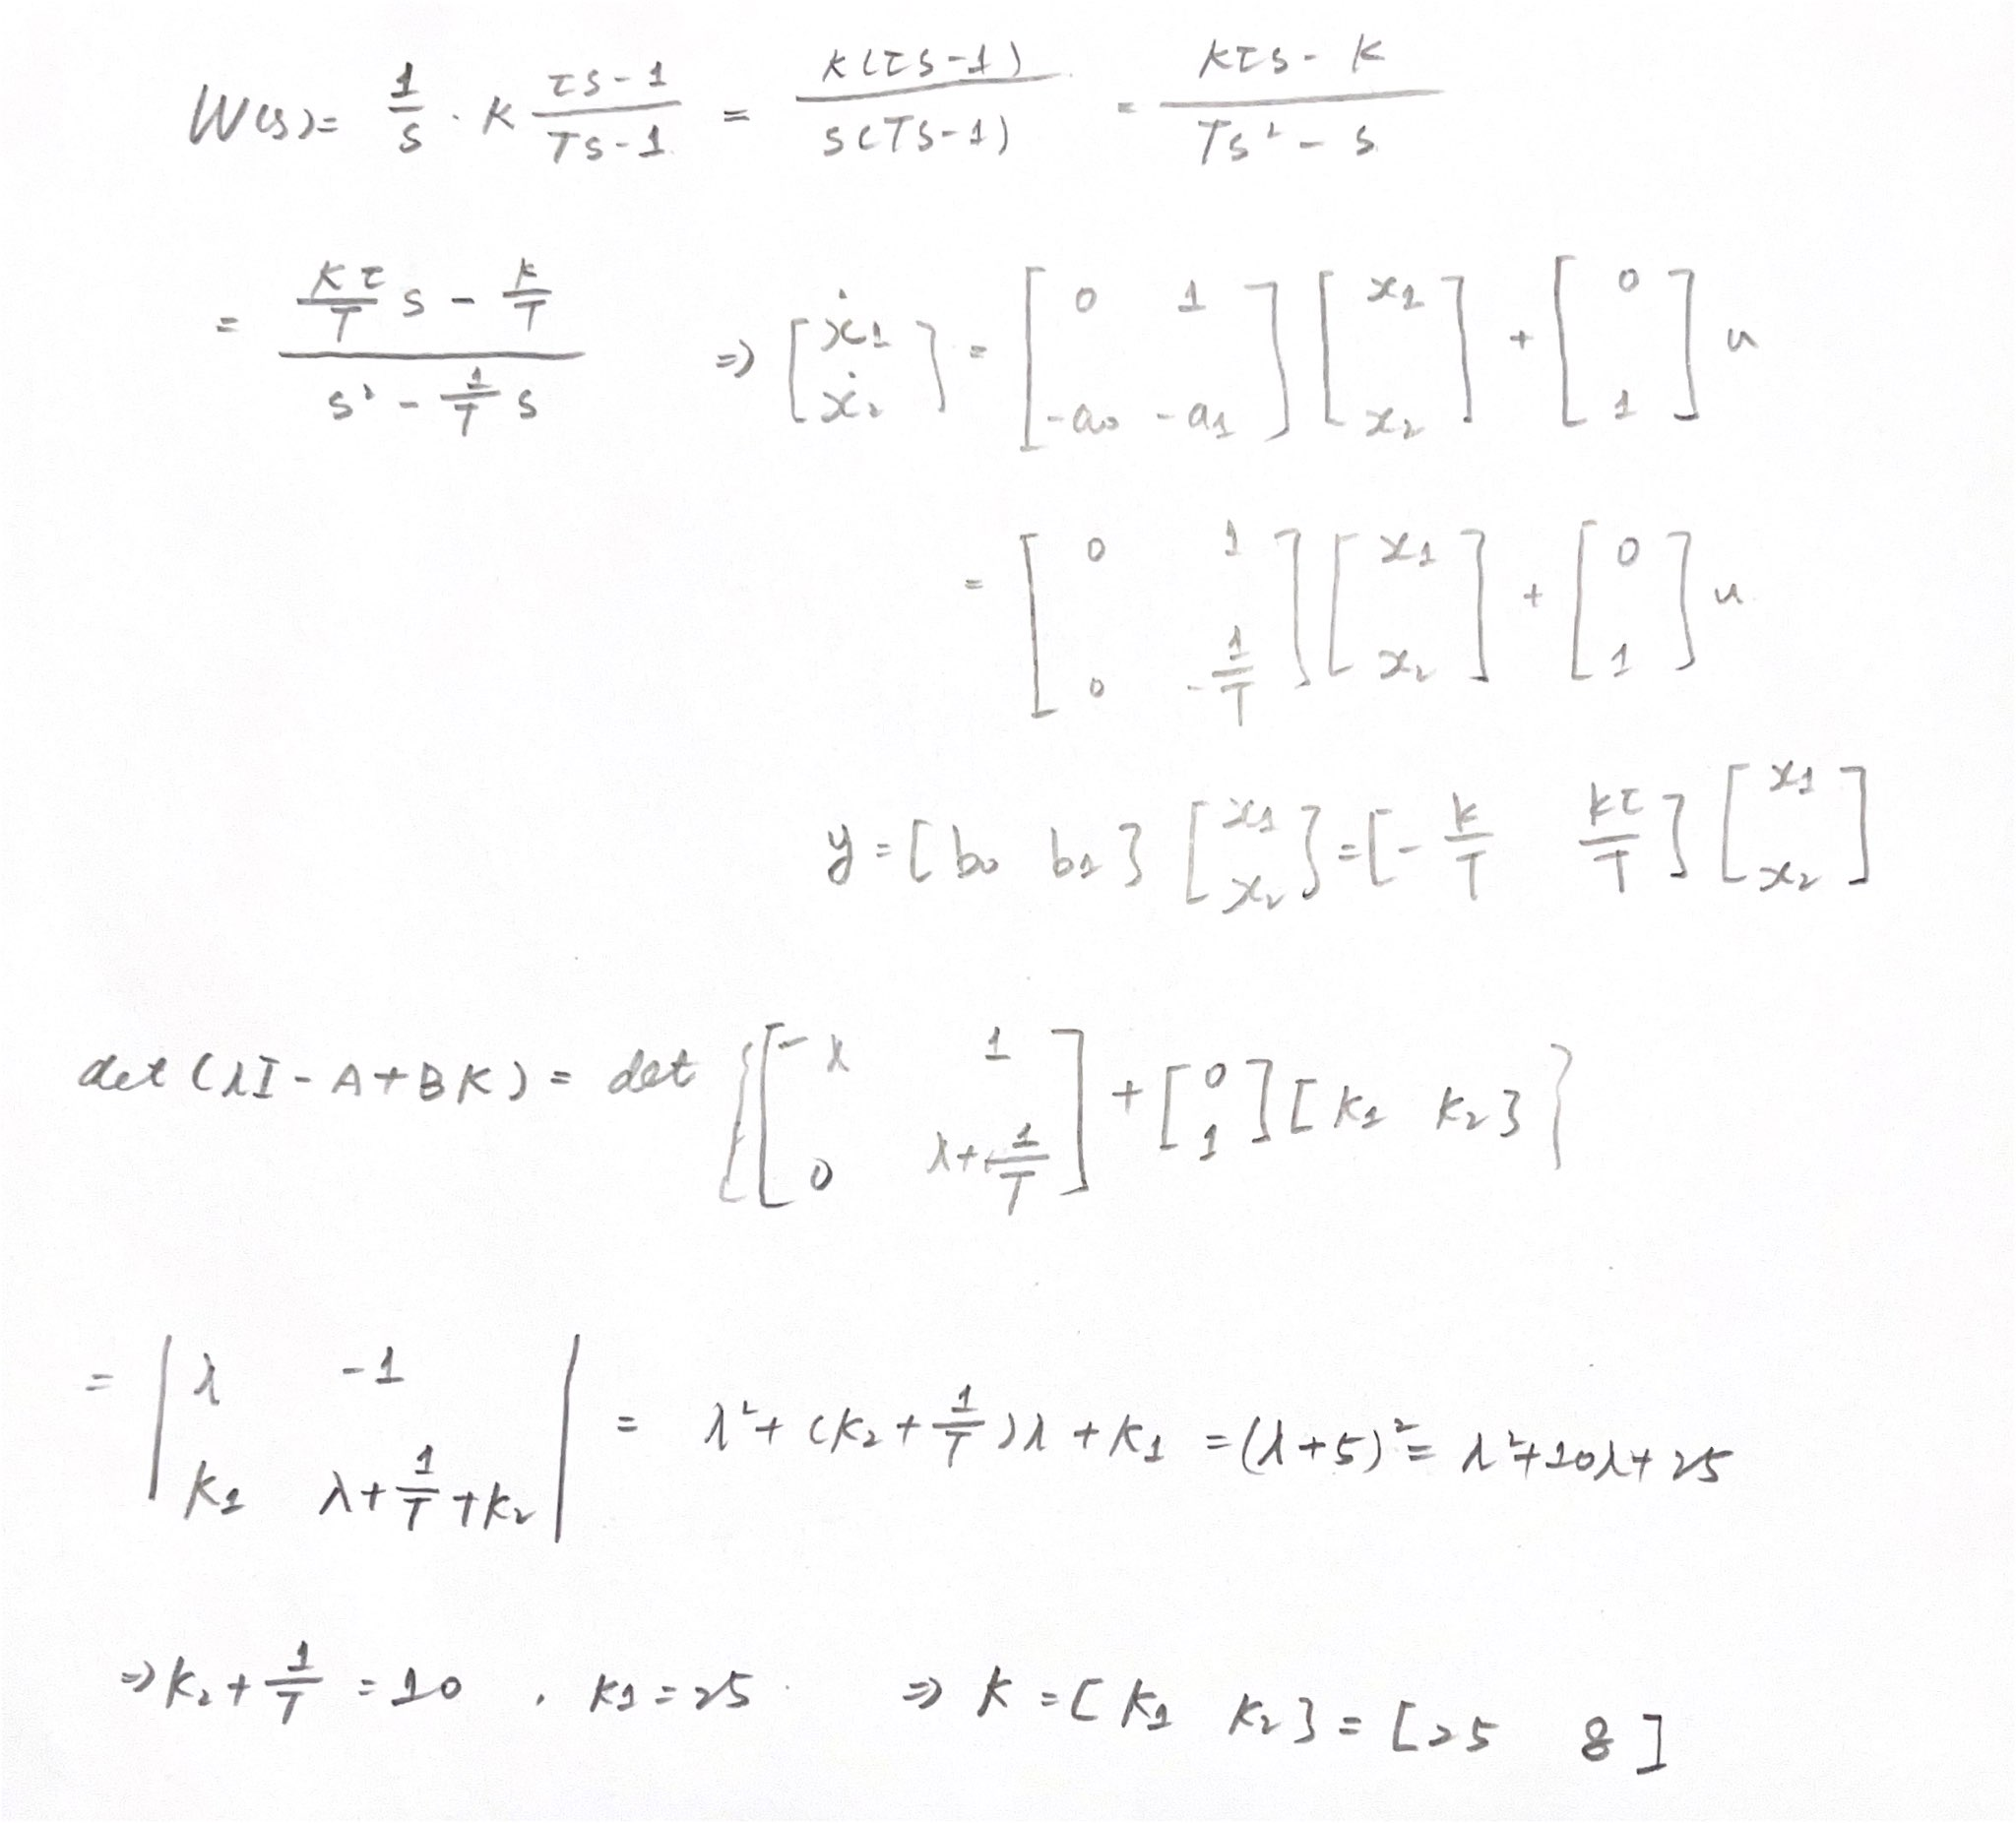 W(s) = \frac{1}{s} \cdot K \frac{τs-1}{Ts-1} = \frac{K(τs-1)}{s(Ts-1)} = \frac{Kτs-K}{Ts^2-s}
= \frac{\frac{Kτ}{T}s - \frac{K}{T}}{s^2 - \frac{1}{T}s} ⇒ \begin{bmatrix} \dot{x}_1 \\ \dot{x}_2 \end{bmatrix} = \begin{bmatrix} 0 & 1 \\ -a_0 & -a_1 \end{bmatrix} \begin{bmatrix} x_1 \\ x_2 \end{bmatrix} + \begin{bmatrix} 0 \\ 1 \end{bmatrix} u
= \begin{bmatrix} 0 & 1 \\ 0 & -\frac{1}{T} \end{bmatrix} \begin{bmatrix} x_1 \\ x_2 \end{bmatrix} + \begin{bmatrix} 0 \\ 1 \end{bmatrix} u
y = [b_0 b_1] \begin{bmatrix} x_1 \\ x_2 \end{bmatrix} = [-\frac{K}{T} \frac{Kτ}{T}] \begin{bmatrix} x_1 \\ x_2 \end{bmatrix}
det(λI - A + BK) = det \left\{ \begin{bmatrix} -λ & 1 \\ 0 & λ+\frac{1}{T} \end{bmatrix} + \begin{bmatrix} 0 \\ 1 \end{bmatrix} [K_1 K_2] \right\}
= \begin{vmatrix} λ & -1 \\ K_1 & λ+\frac{1}{T}+K_2 \end{vmatrix} = λ^2 + (K_2 + \frac{1}{T})λ + K_1 = (λ+5)^2 = λ^2+10λ+25
⇒ K_2 + \frac{1}{T} = 10 , K_1 = 25 . ⇒ K = [K_1 K_2] = [25 8]